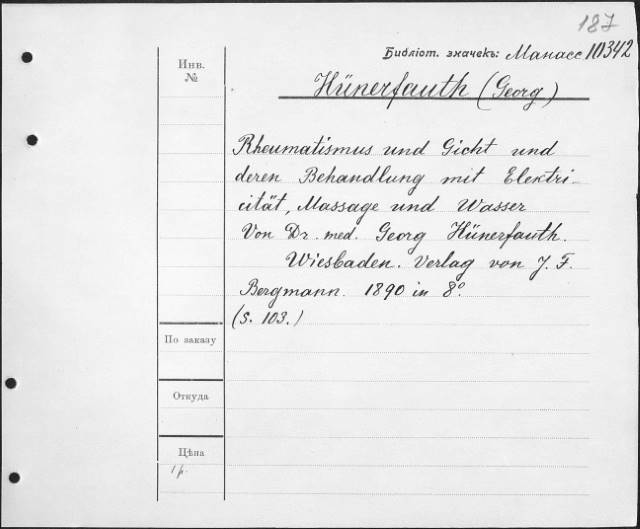 187
Библіот. значекъ: Манасс 10342
Инв.
№
Hünerfauth (Georg)
Rheumatismus und Gicht und
deren Behandlung mit Elektri-
cität, Massage und Wasser
Von Dr. med. Georg Hünerfauth.
Wiesbaden. Verlag von J. F.
Bergmann. 1890 in 8º.
(S. 103.)
По заказу
Откуда
Цѣна
1 р.